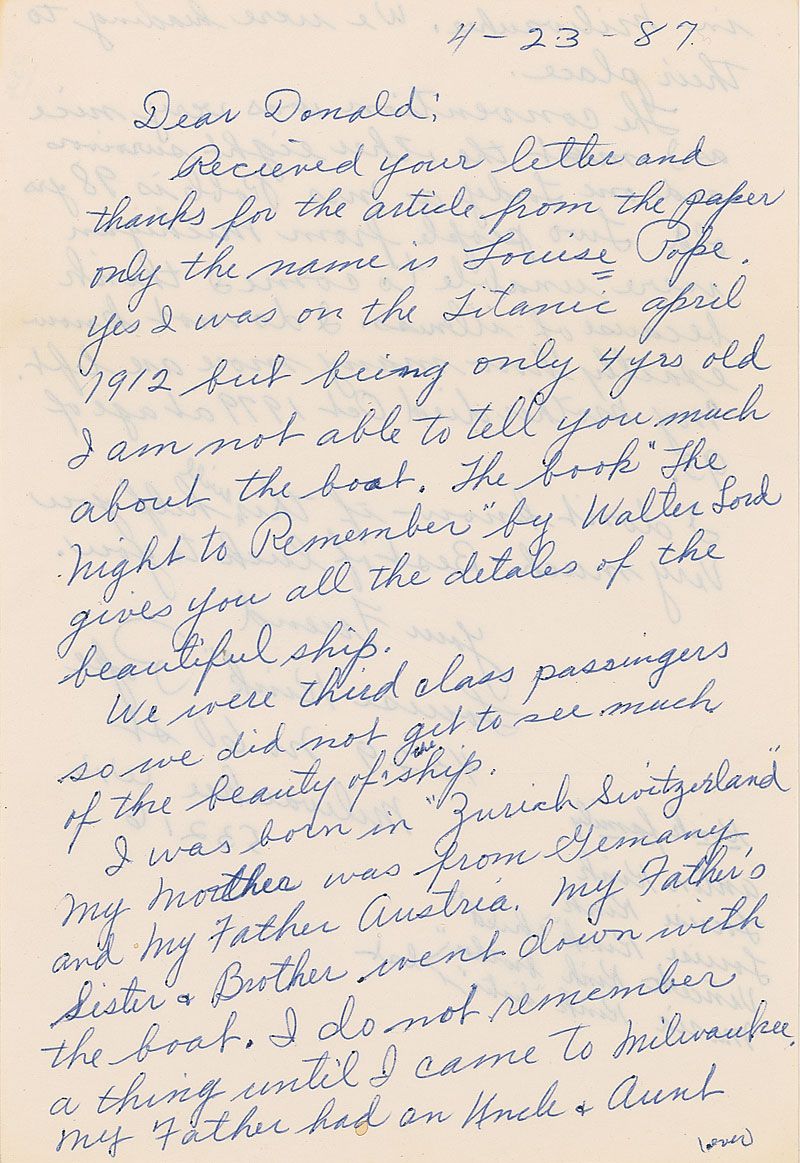 4-23-87.
Dear Donald;
Recieved your letter and
thanks for the article from the paper
only the name is Louise Pope.
Yes I was on the Titanic april
1912 but being only 4 yrs old
I am not able to tell you much
about the boat. The book "The
Night to Remember" by Walter Lord
gives you all the detales of the
beautiful ship.
We were third class passingers
so we did not get to see much
of the beauty of the ship.
I was born in "Zurich Switzerland"
My Mother was from Gemany
and My Father Austria. My Father's
Sister & Brother went down with
the boat. I do not remember
a thing until I came to Milwaukee.
My Father had an Uncle & Aunt
(over)